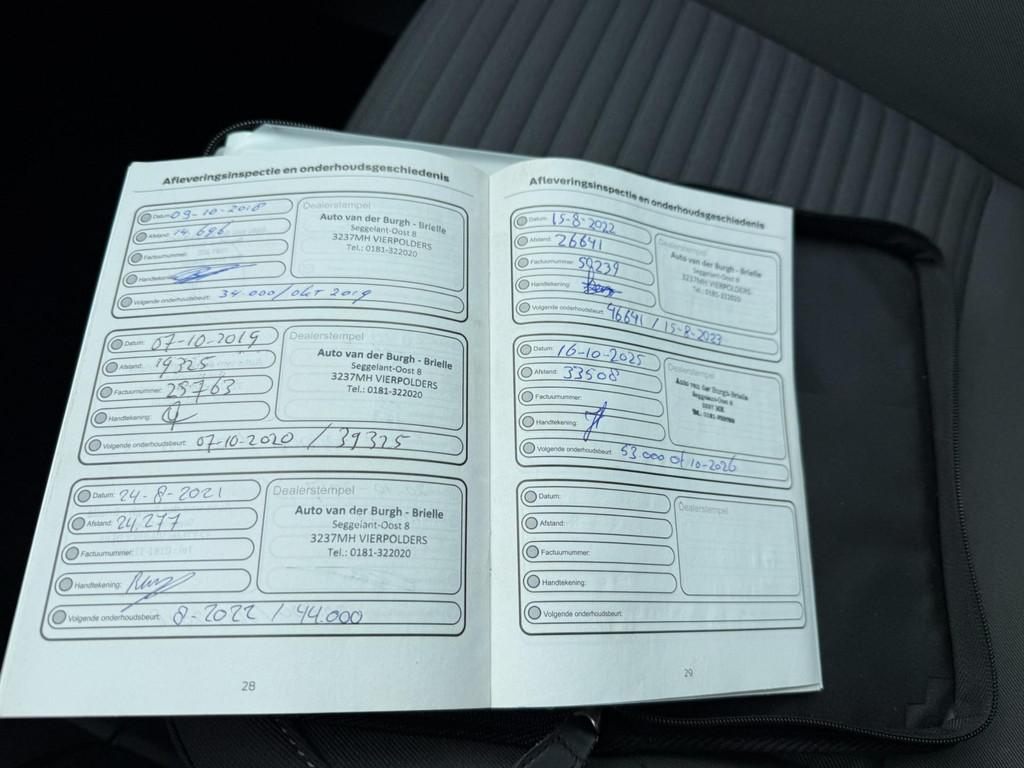 Afleveringsinspectie en onderhoudsgeschiedenis
Datum: 09-10-2018
Afstand: 14.696
Factuurnummer:
Handtekening:
Volgende onderhoudsbeurt: 34.000/okt 2019
Dealerstempel
Auto van der Burgh - Brielle
Seggelant-Oost 8
3237MH VIERPOLDERS
Tel.: 0181-322020
Datum: 07-10-2019
Afstand: 19325
Factuurnummer: 25763
Handtekening:
Volgende onderhoudsbeurt: 07-10-2020 / 39325
Dealerstempel
Auto van der Burgh - Brielle
Seggelant-Oost 8
3237MH VIERPOLDERS
Tel.: 0181-322020
Datum: 24-8-2021
Afstand: 24,277
Factuurnummer:
Handtekening:
Volgende onderhoudsbeurt: 8-2022 / 44.000
Dealerstempel
Auto van der Burgh - Brielle
Seggelant-Oost 8
3237MH VIERPOLDERS
Tel.: 0181-322020
28
Afleveringsinspectie en onderhoudsgeschiedenis
Datum: 15-8-2022
Afstand: 26641
Factuurnummer: 50239
Handtekening:
Volgende onderhoudsbeurt: 46641 / 15-8-2023
Dealerstempel
Auto van der Burgh - Brielle
Seggelant-Oost 8
3237MH VIERPOLDERS
Tel.: 0181-322020
Datum: 16-10-2025
Afstand: 33508
Factuurnummer:
Handtekening:
Volgende onderhoudsbeurt: 53.000 of 10-2026
Dealerstempel
Auto van der Burgh-Brielle
Seggelant-Oost 8
Datum:
Afstand:
Factuurnummer:
Handtekening:
Volgende onderhoudsbeurt:
Dealerstempel
29